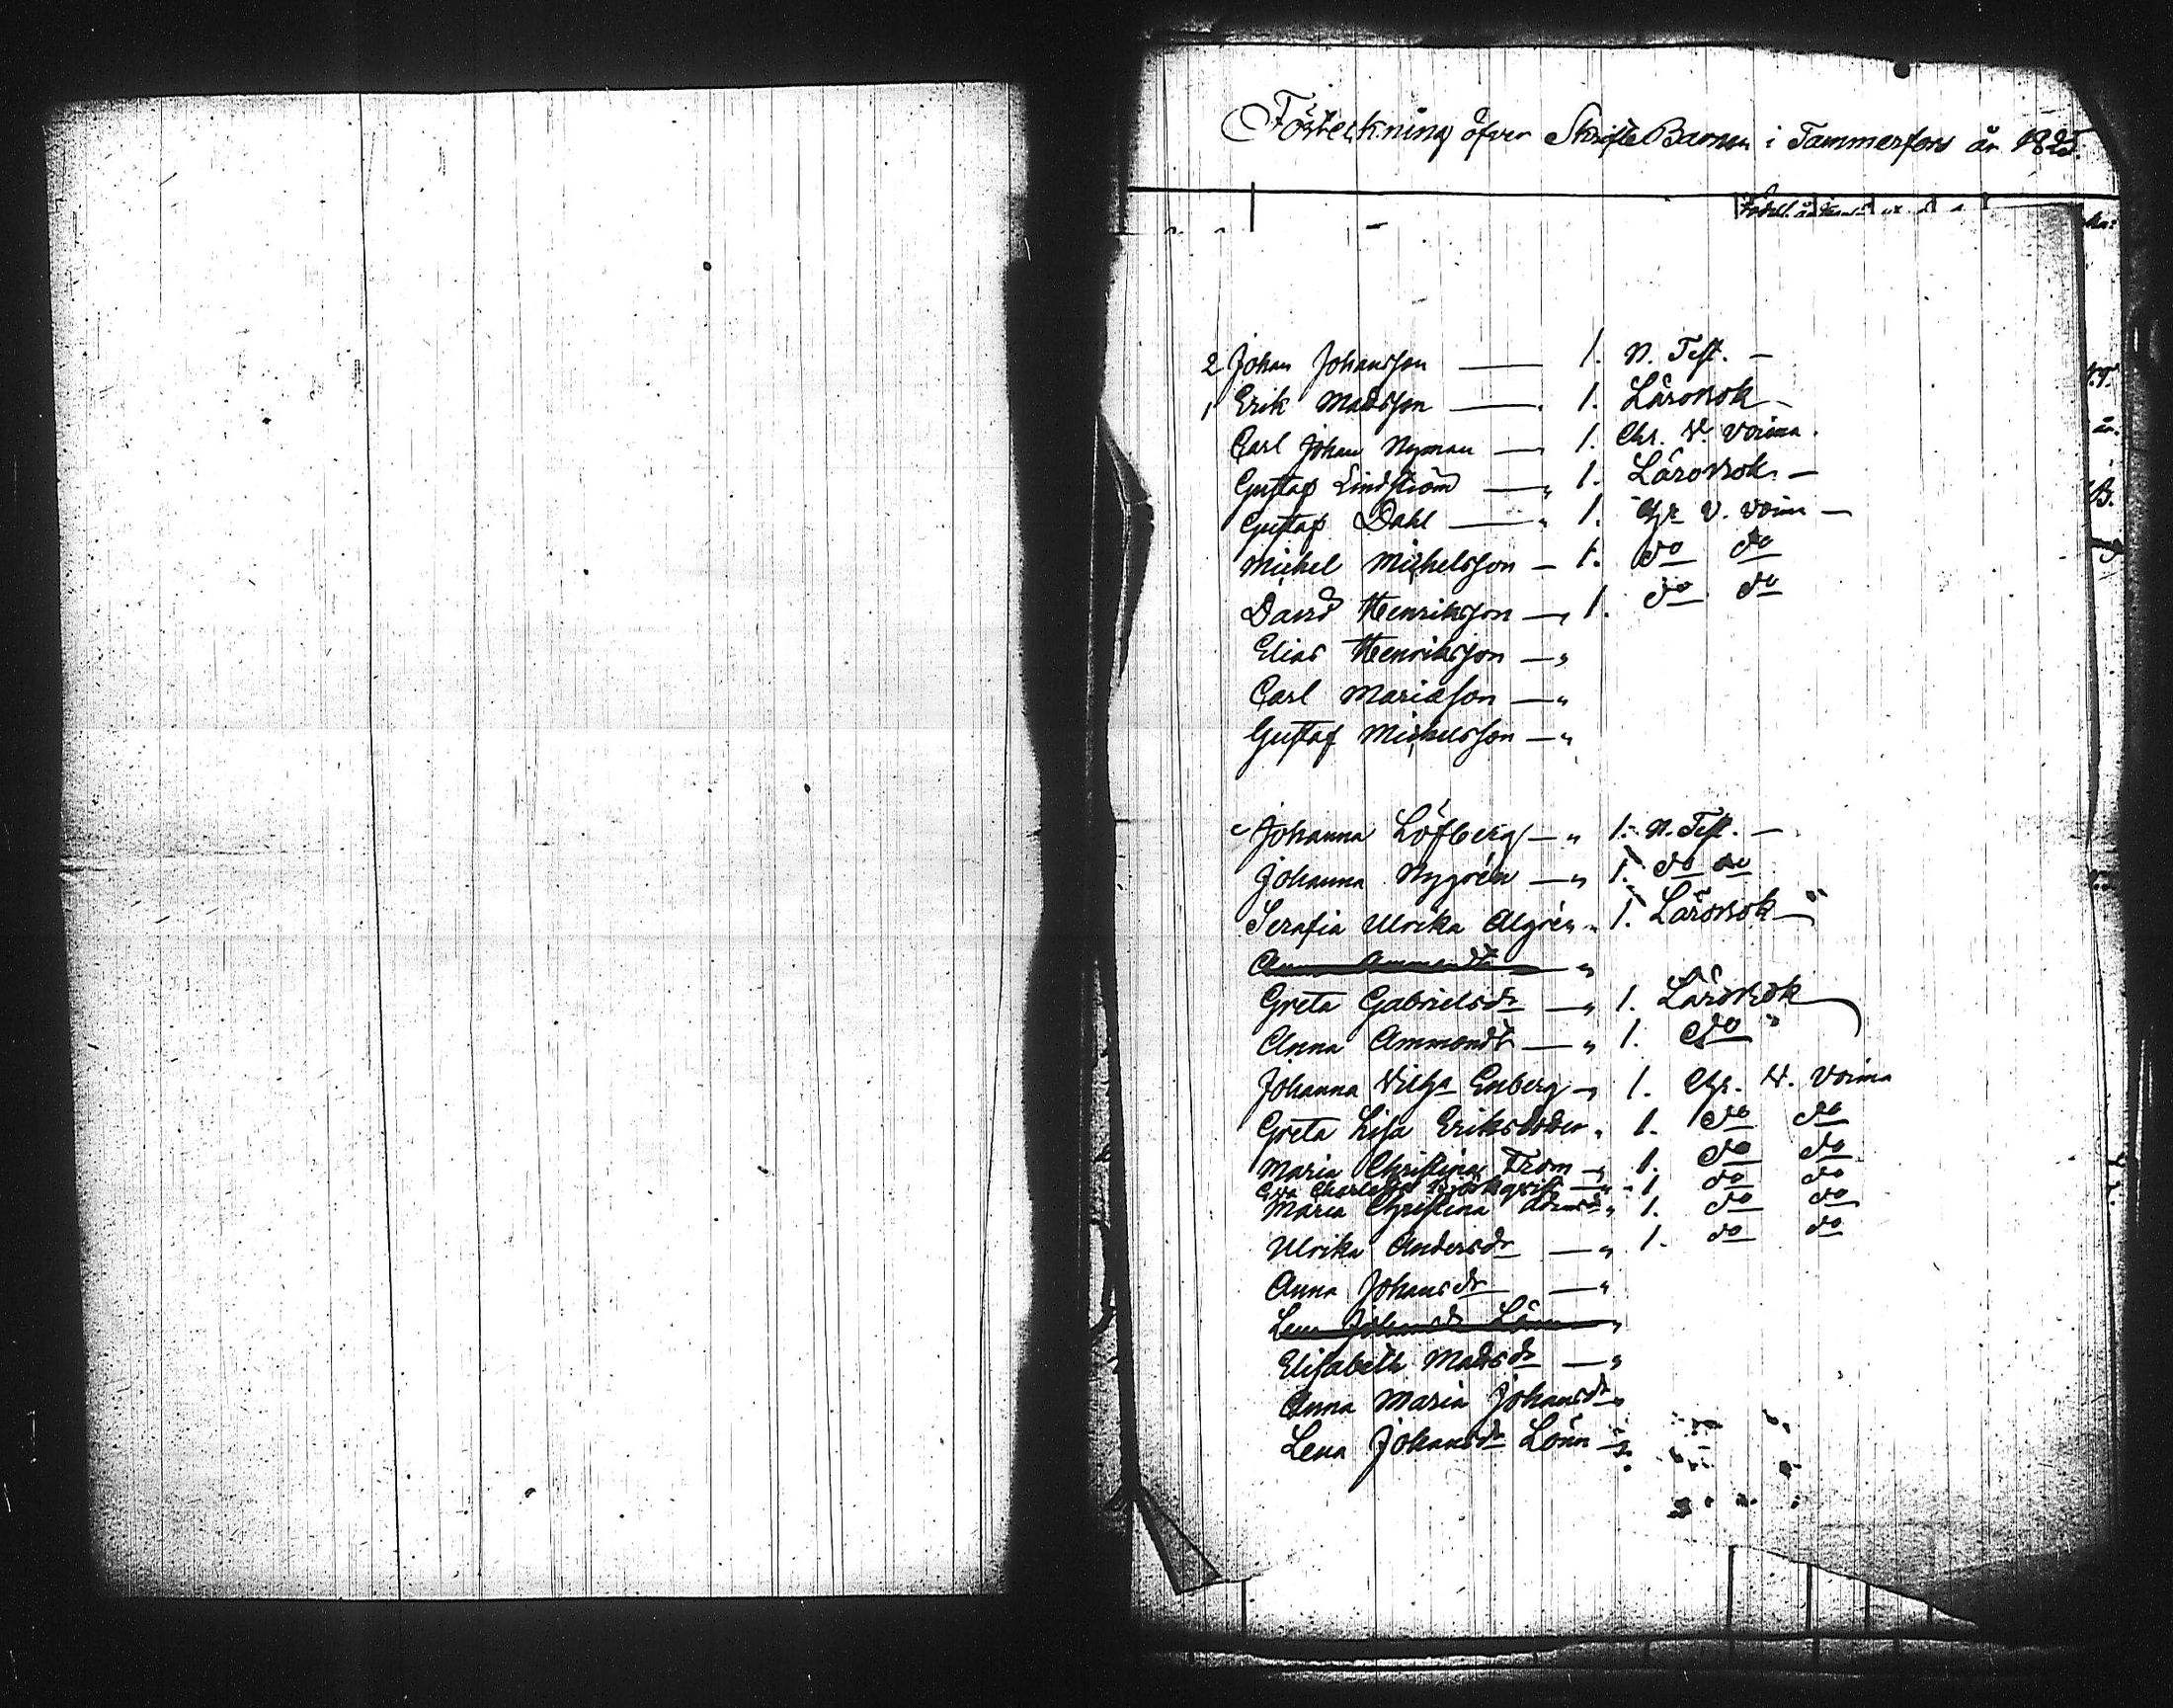 Förteckning öfver Skrifte Barnen i Tammerfors år 1825.
2 Johan Johansson — 1. N. Test. —
1 Erik Madsson — 1. Lärobok —
Carl Johan Nyman — 1. Chr. V. Voima.
Gustaf Lindström — " 1. Lärobok. —
Gustaf Dahl — " 1. Chr V. Voim —
Michel Michelsson — 1. do do
David Henriksson — " 1. do do
Elias Henriksson — "
Carl Mariæson — "
Gustaf Michelsson — "
Johanna Löfberg — " 1. N. Test. —
Johanna Nygrén — " 1. do do
Serafia Ulrika Algrén " 1. Lärobok — "
Anna Ammondt — "
Greta Gabrielsdr — " 1. Lärobok
Anna Ammondt — " 1. do "
Johanna Vilhja Enberg — " 1. Chr. V. Voima
Greta Lisa Eriksdoter " 1. do do
Maria Christina From — " 1. do do
Eva Charlotta Björkqvist — " 1 do do
Maria Christina " 1. do do
Ulrika Andersdr — " 1. do do
Anna Johansdr — "
Lena Johansdr Lönn "
Elisabeth Madsdr — "
Anna Maria Johansdr "
Lena Johansdr Lönn — "